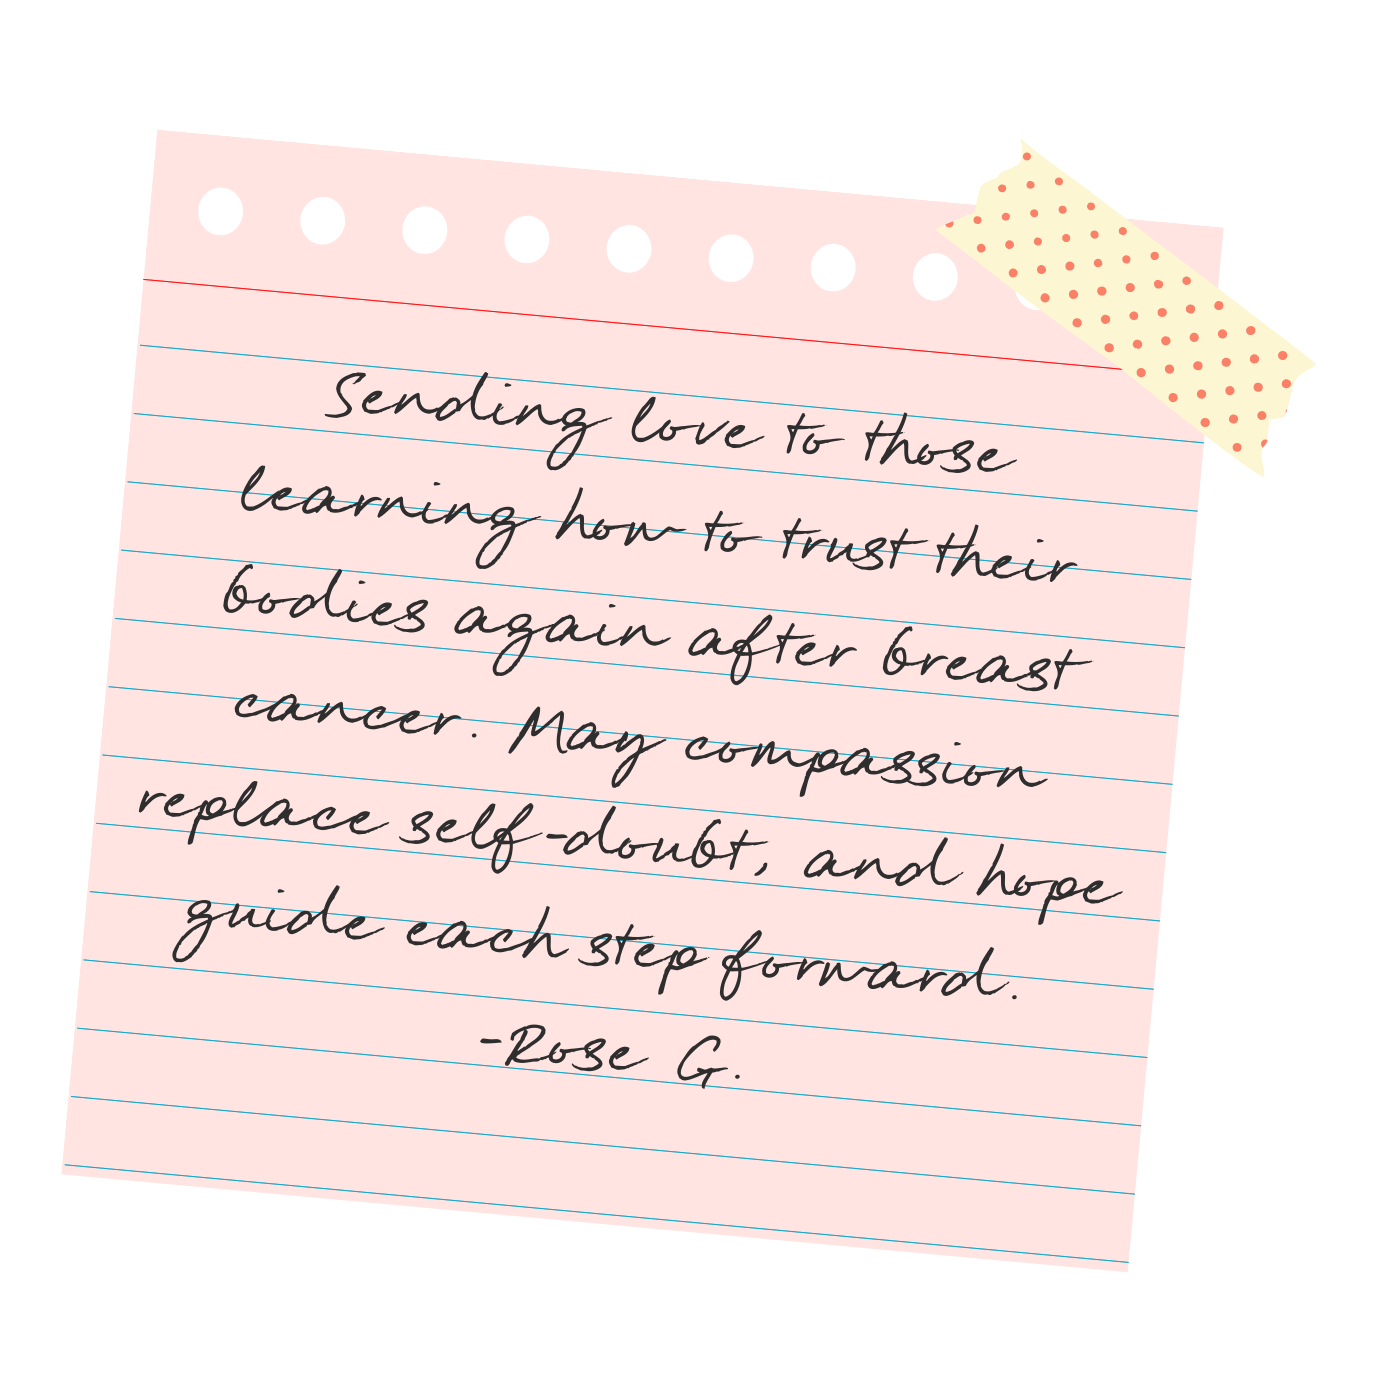 Sending love to those
learning how to trust their
bodies again after breast
cancer. May compassion
replace self-doubt, and hope
guide each step forward.
-Rose G.